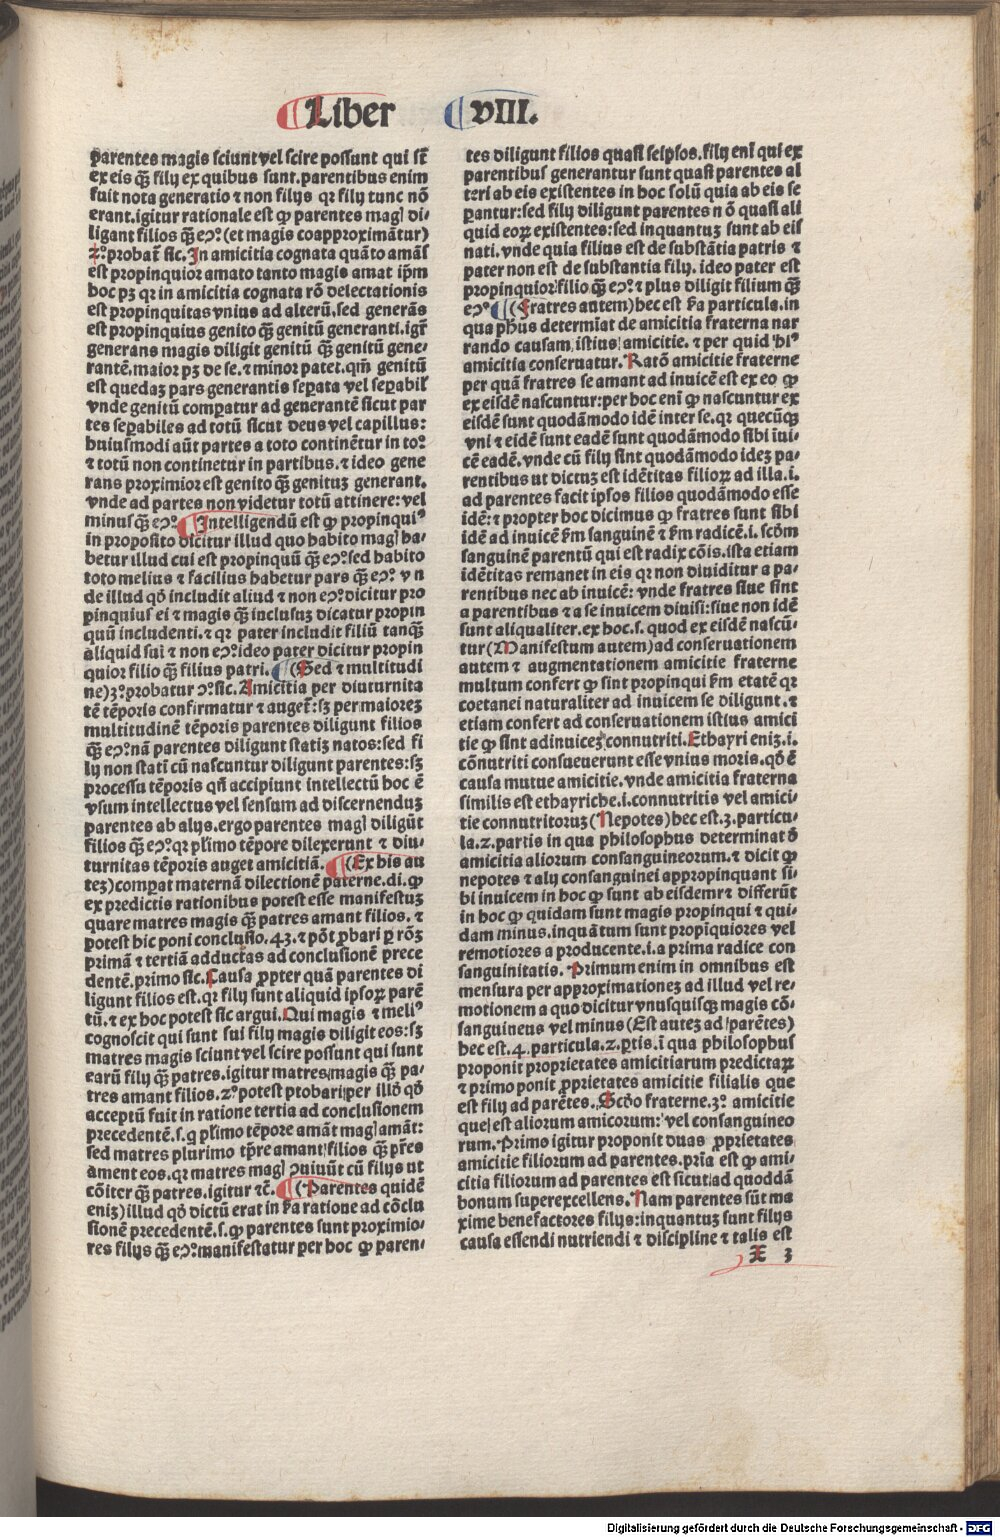 Liber VIII.
parentes magis sciunt vel scire possunt qui sūt
ex eis q̄ȝ filij ex quibus sunt. parentibus enim
fuit nota generatio ⁊ non filijs qꝛ filij tunc nō
erant. igitur rationale est ꝙ parentes magꝭ di-
ligant filios q̄ȝ eↄ̨ᵒ (et magis coapproximātur)
2ᵒ. probat̄ sic. In amicitia cognata quāto amās
est propinquior amato tanto magis amat ip̄m
hoc pȝ qꝛ in amicitia cognata rō delectationis
est propinquitas vnius ad alterū. sed generās
est propinquius genito q̄ȝ genitū generanti. igr̄
generans magis diligit genitū q̄ȝ genitū gene-
rantē. maior pȝ de se. ⁊ minor patet. qm̄ genitū
est quedaȝ pars generantis seperata vel seperabil'
vnde genitū comparatur ad generantē sicut par
tes seperabiles ad totū sicut deus vel capillus:
huiusmodi aūt partes a toto continētur in toᵒ.
⁊ totū non continetur in partibus. ⁊ ideo gene
rans proximior est genito q̄ȝ genituȝ generant.
vnde ad partes non videtur totū attinere: vel
minus q̄ȝ eↄ̨ᵒ. Intelligendū est ꝙ propinquiꝰ
in proposito dicitur illud quo habito magꝭ ha-
betur illud cui est propinquū q̄ȝ eↄ̨ᵒ: sed habito
toto melius ⁊ facilius habetur pars q̄ȝ eↄ̨ᵒ. v n
de illud qd̄ includit aliud ⁊ non eↄ̨ᵒ: dicitur pro
pinquius ei ⁊ magis q̄ȝ inclusuȝ dicatur propin
quū includenti. ⁊ qꝛ pater includit filiū tanq̄ȝ
aliquid sui ⁊ non eↄ̨ᵒ: ideo pater dicitur propin
quior filio q̄ȝ filius patri. (Sed ⁊ multitudi
ne) 3ᵒ: probatur ↄᵒ: sic. Amicitia per diuturnita
tē tēporis confirmatur ⁊ auget̄: sȝ per maioreȝ
multitudinē tēporis parentes diligunt filios
q̄ȝ eↄ̨ᵒ: nā parentes diligunt statiȝ natos: sed fi
lij non stati cū nascuntur diligunt parentes: sȝ
processu tēporis qn̄ accipiunt intellectū hoc ē
vsum intellectus vel sensum ad discernenduȝ
parentes ab alijs. ergo parentes magꝭ diligūt
filios q̄ȝ eↄ̨ᵒ: qꝛ pl'imo tēpore dilexerunt ⁊ diu-
turnitas tēporis auget amicitiā. (Ex his au
teȝ) comparat maternā dilectionē paterne. di. ꝙ
ex predictis rationibus potest esse manifestuȝ
quare matres magis q̄ȝ patres amant filios. ⁊
potest hic poni conclusio. 43. ⁊ pōt ꝓbari ꝑ rōȝ
primā ⁊ tertiā adductas ad conclusionē prece
dentē. primo sic. Causa ꝓpter quā parentes di
ligunt filios est. qꝛ filij sunt aliquid ipsoꝝ parē
tū. ⁊ ex hoc potest sic argui. Qui magis ⁊ meliꝰ
cognoscit qui sunt sui filij magis diligit eos: sȝ
matres magis sciunt vel scire possunt qui sunt
earū filij q̄ȝ patres. igitur matres magis q̄ȝ pa-
tres amant filios. 2ᵒ. potest ptobari per illd̄ qd̄
acceptū fuit in ratione tertia ad conclusionem
precedentē. s. q pl'imo tēpore amāt magꝭ amāt:
sed matres plurimo tp̄re amant filios q̄ȝ pr̄es
ament eos. qꝛ matres magꝭ ↄuiuūt cū filijs ut
cōiter q̄ȝ patres. igitur ⁊c̄. (Parentes quidē
eniȝ) illud qd̄ dictū erat in pͥa ratione ad cōclu
sionē precedentē. s. ꝙ parentes sunt proximio-
res filijs q̄ȝ eↄ̨ᵒ: manifestatur per hoc ꝙ paren-
tes diligunt filios quasi seipsos. filij eni qui ex
parentibus generantur sunt quasi parentes al
teri ab eis existentes in hoc solū quia ab eis se
perantur: sed filij diligunt parentes nō quasi ali
quid eoꝝ existentes: sed inquantuȝ sunt ab eis
nati. vnde quia filius est de substātia patris ⁊
pater non est de substantia filij. ideo pater est
propinquior filio q̄ȝ eↄ̨ᵒ ⁊ plus diligit filium q̄ȝ
eↄ̨ᵒ (Fratres autem) hec est pͥa particula. in
qua ph̄us determīat de amicitia fraterna nar
rando causam istius amicitie. ⁊ per quid hꝰⁱ
amicitia conseruatur. Ratō amicitie fraterne
per quā fratres se amant ad inuicē est ex eo ꝙ
ex eisdē nascuntur: per hoc eni ꝙ nascuntur ex
eisdē sunt quodāmodo idē inter se. qꝛ quecūqȝ
vni ⁊ eidē sunt eadē sunt quodāmodo sibi īui-
cē eadē. vnde cū filij sint quodāmodo ideȝ pa-
rentibus ut dictuȝ est idētitas filioꝝ ad illa. i.
ad parentes facit ipsos filios quodāmodo esse
idē: ⁊ propter hoc dicimus ꝙ fratres sunt sibi
idē ad inuicē ẜm sanguinē ⁊ ẜm radicē. i. scd̄m
sanguinē parentū qui est radix cōis. ista etiam
idētitas remanet in eis qꝛ non diuiditur a pa-
rentibus nec ab inuicē: vnde fratres siue sint
a parentibus ⁊ a se inuicem diuisi: siue non idē
sunt aliqualiter. ex hoc. s. quod ex eisdē nascū-
tur (Manifestum autem) ad conseruationem
autem ⁊ augmentationem amicitie fraterne
multum confert ꝙ sint propinqui ẜm etatē qꝛ
coetanei naturaliter ad inuicem se diligunt. ⁊
etiam confert ad conseruationem istius amici
tie ꝙ sint adinuiceȝ connutriti. Ethayri eniȝ. i.
cōnutriti consueuerunt esse vnius moris. qd̄ ē
causa mutue amicitie. vnde amicitia fraterna
similis est ethayriche. i. connutritis vel amici-
tie connutritoruȝ (Nepotes) hec est. 3. particu-
la. 2. partis in qua philosophus determinat d̄
amicitia aliorum consanguineorum. ⁊ dicit ꝙ
nepotes ⁊ alij consanguinei appropinquant si-
bi inuicem in hoc ꝙ sunt ab eisdem ⁊ differūt
in hoc ꝙ quidam sunt magis propinqui ⁊ qui-
dam minus. inquātum sunt propiquiores vel
remotiores a producente. i. a prima radice con
sanguinitatis. Primum enim in omnibus est
mensura per approximationeȝ ad illud vel re-
motionem a quo dicitur vnusquisqȝ magis cō-
sanguineus vel minus (Est auteȝ ad parētes)
hec est. 4. particula. 2. ꝑtis. ī qua philosophus
proponit proprietates amicitiarum predictaꝝ
⁊ primo ponit ꝓprietates amicitie filialis que
est filij ad parētes. Scd̄o fraterne. 3ᵒ. amicitie
que est aliorum amicorum: vel consanguineo
rum. Primo igitur proponit duas ꝓprietates
amicitie filiorum ad parentes. pria est ꝙ ami-
citia filiorum ad parentes est sicut ad quoddā
bonum superexcellens. Nam parentes sūt ma
xime benefactores filijs: inquantuȝ sunt filijs
causa essendi nutriendi ⁊ discipline ⁊ talis est
X 3
Digitalisierung gefördert durch die Deutsche Forschungsgemeinschaft - DFG